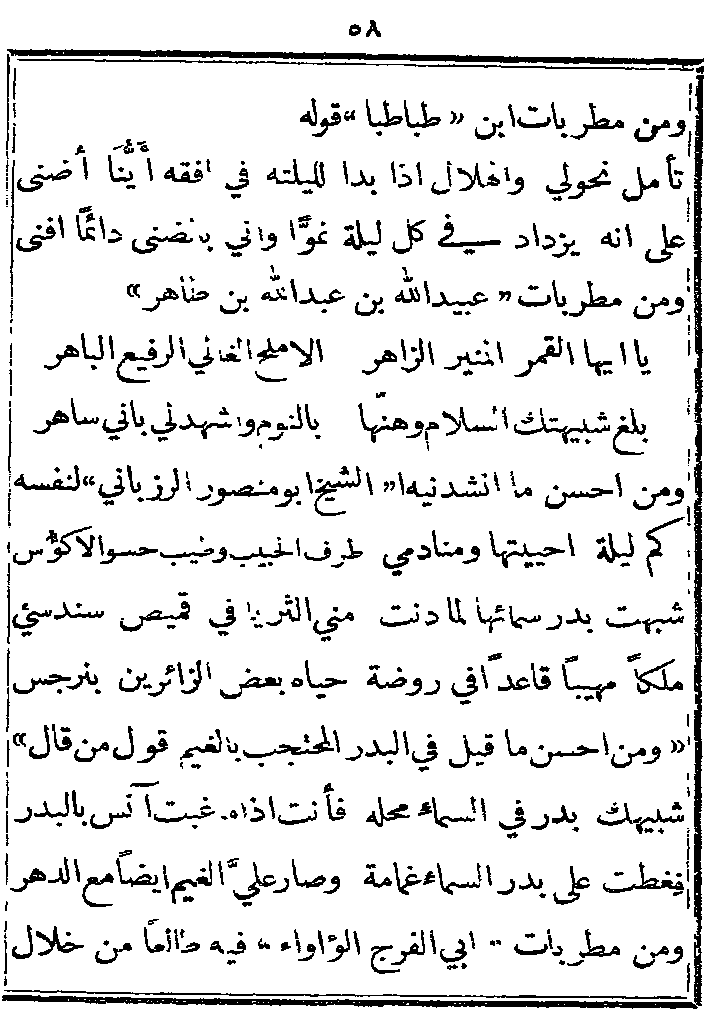 ٥٨
ومن مطربات ابن «طباطبا» قوله
تأمل نحولي والهلال اذا بدا لليلته في افقه أيُّنا أضنى
على انه يزداد في كل ليلة نموًّا واني بالضنى دائمًا افنى
ومن مطربات «عبيدالله بن عبدالله بن طاهر»
يا ايها القمر المنير الزاهر الاملح الغالي الرفيع الباهر
بلغ شبيهتك السلام وهنّها بالنوم واشهد لي باني ساهر
ومن احسن ما انشدنيه «الشيخ ابو منصور الرزباني» لنفسه
كم ليلة احييتها ومنادمي طرف الحبيب وطيب حسو الاكؤس
شبهت بدر سمائها لما دنت مني الثريا في قميص سندسيّ
ملكاً مهيباً قاعداً في روضة حياه بعض الزائرين بنرجس
«ومن احسن ما قيل في البدر المحتجب بالغيم قول من قال»
شبيهك بدر في السماء محله فأنت اذا. غبت آنس بالبدر
فغطت على بدر السماء غمامة وصار عليَّ الغيم ايضاً مع الدهر
ومن مطربات «ابي الفرج الوٰاواء» فيه طالعاً من خلال